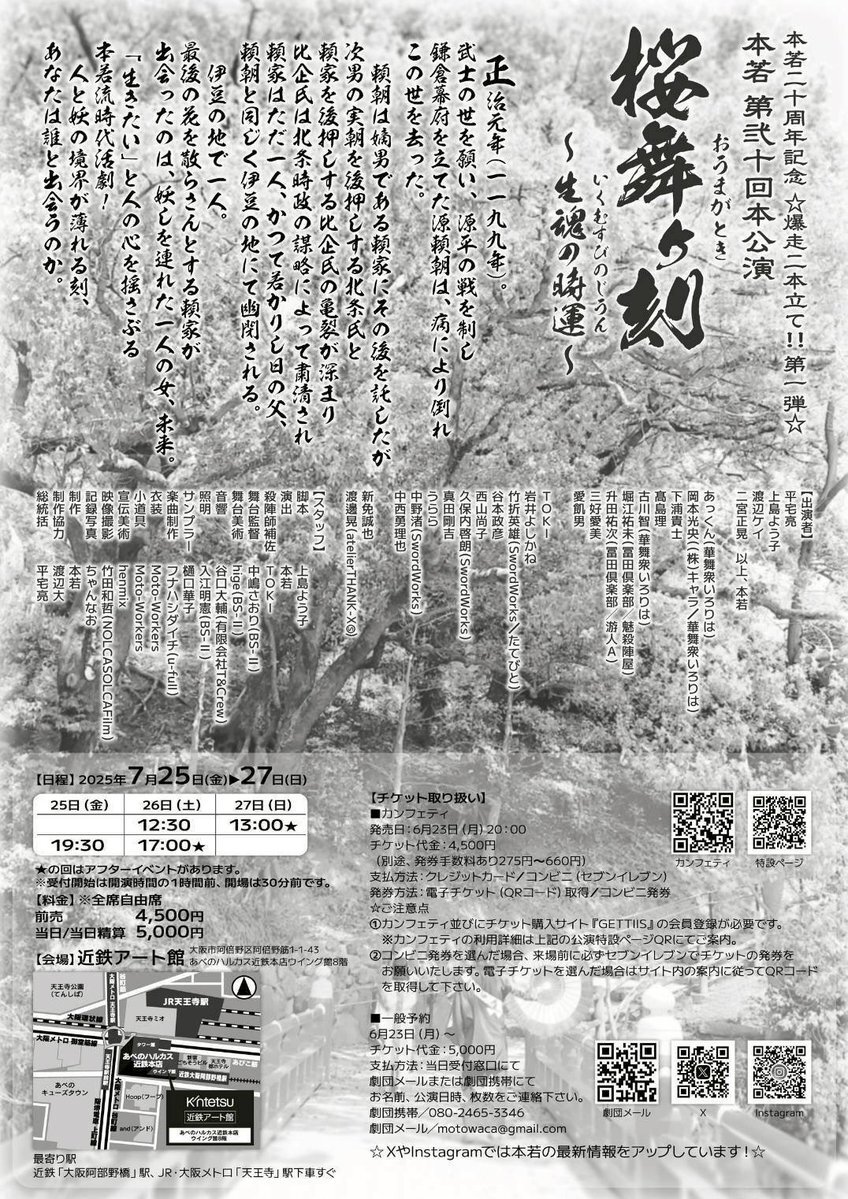 本若二十周年記念 ☆爆走二本立て!! 第一弾☆
本若 第弐十回本公演
桜舞ヶ刻
おうまがとき
～生魂の時運～
いくむすびのじうん
正治元年(一一九九年)。
武士の世を願い、源平の戦を制し
鎌倉幕府を立てた源頼朝は、病により倒れ
この世を去った。
頼朝は嫡男である頼家にその後を託したが
次男の実朝を後押しする北条氏と
頼家を後押しする比企氏の亀裂が深まり
比企氏は北条時政の謀略によって粛清され
頼家はただ一人、かつて若かりし日の父、
頼朝と同じく伊豆の地にて幽閉される。
伊豆の地で一人。
最後の花を散らさんとする頼家が
出会ったのは、妖しを連れた一人の女、未来。
「生きたい」と人の心を揺さぶる
本若流時代活劇!
人と妖の境界が薄れる刻、
あなたは誰と出会うのか。
【出演者】
平宅亮
上島よう子
渡辺ケイ
二宮正晃 以上、本若
あっくん(華舞衆いろりは)
岡本光央((株)キャラ/華舞衆いろりは)
下浦貴士
髙島理
古川智(華舞衆いろりは)
堀江祐未(冨田倶楽部/魅殺陣屋)
升田祐次(冨田倶楽部/游人A)
三好愛美
愛飢男
TOKI
岩井よしかね
竹折英雄(SwordWorks/だてびと)
谷本政彦
西山尚子
久保内啓朗(SwordWorks)
真田剛吉
うらら
中野渚(SwordWorks)
中西勇理也
新免誠也
渡邊晃(atelierTHANK-X◎)
【スタッフ】
脚本 上島よう子
演出 本若
殺陣師補佐 TOKI
舞台監督 中嶋さおり(BS-II)
舞台美術 hige(BS-II)
音響 谷口大輔(有限会社T&Crew)
照明 入江明憲(BS-II)
サンプラー 樋口華子
楽曲制作 フナハシダイチ(u-full)
衣装 Moto-Workers
小道具 Moto-Workers
宣伝美術 henmix
映像撮影 竹田和哲(NOLCASOLCAFilm)
記録写真 ちゃんなお
制作 本若
制作協力 渡辺大
総統括 平宅亮
【日程】2025年7月25日(金)▶27日(日)
25日(金) 26日(土) 27日(日)
12:30 13:00★
19:30 17:00★
★の回はアフターイベントがあります。
※受付開始は開演時間の1時間前、開場は30分前です。
【料金】※全席自由席
前売 4,500円
当日/当日精算 5,000円
【会場】近鉄アート館
大阪市阿倍野区阿倍野筋1-1-43
あべのハルカス近鉄本店ウイング館8階
天王寺公園
(てんしば)
大阪メトロ 谷町線
JR天王寺駅
天王寺ミオ
大阪環状線
大阪メトロ 御堂筋線
タワー館
あべのハルカス
近鉄本店
ウイング館
天王寺都ホテル
近鉄大阪阿部野橋駅
あびこ筋
あべの
キューズタウン
Hoop(フープ)
and(アンド)
Kintetsu
近鉄アート館
あべのハルカス近鉄本店
ウイング館8階
最寄り駅
近鉄「大阪阿部野橋」駅、JR・大阪メトロ「天王寺」駅下車すぐ
【チケット取り扱い】
■カンフェティ
発売日:6月23日(月)20:00
チケット代金:4,500円
(別途、発券手数料あり275円〜660円)
支払方法:クレジットカード/コンビニ(セブンイレブン)
発券方法:電子チケット(QRコード)取得/コンビニ発券
☆ご注意点
①カンフェティ並びにチケット購入サイト『GETTIIS』の会員登録が必要です。
※カンフェティの利用詳細は上記の公演特設ページQRにてご案内。
②コンビニ発券を選んだ場合、来場前に必ずセブンイレブンでチケットの発券を
お願いいたします。電子チケットを選んだ場合はサイト内の案内に従ってQRコード
を取得して下さい。
カンフェティ
特設ページ
■一般予約
6月23日(月)〜
チケット代金:5,000円
支払方法:当日受付窓口にて
劇団メールまたは劇団携帯にて
お名前、公演日時、枚数をご連絡下さい。
劇団携帯/080-2465-3346
劇団メール/motowaca@gmail.com
劇団メール
X
Instagram
☆XやInstagramでは本若の最新情報をアップしています!☆